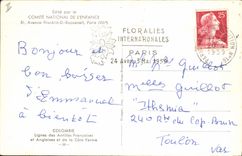 Edité par le
COMITÉ NATIONAL DE L'ENFANCE
51, Avenue Franklin-D.-Roosevelt, Paris
FLORALIES
INTERNATIONALES
PARIS
24 Avril 3 Mai 1959
25
Bonjour et
bon baiser
d'Emmanuel
à bientôt
Guillot
Guillot
240 Rd du Cap-Brun
Toulon
Var
COLOMBIE
Lignes des Antilles Françaises
et Anglaises et de la Côte Ferme